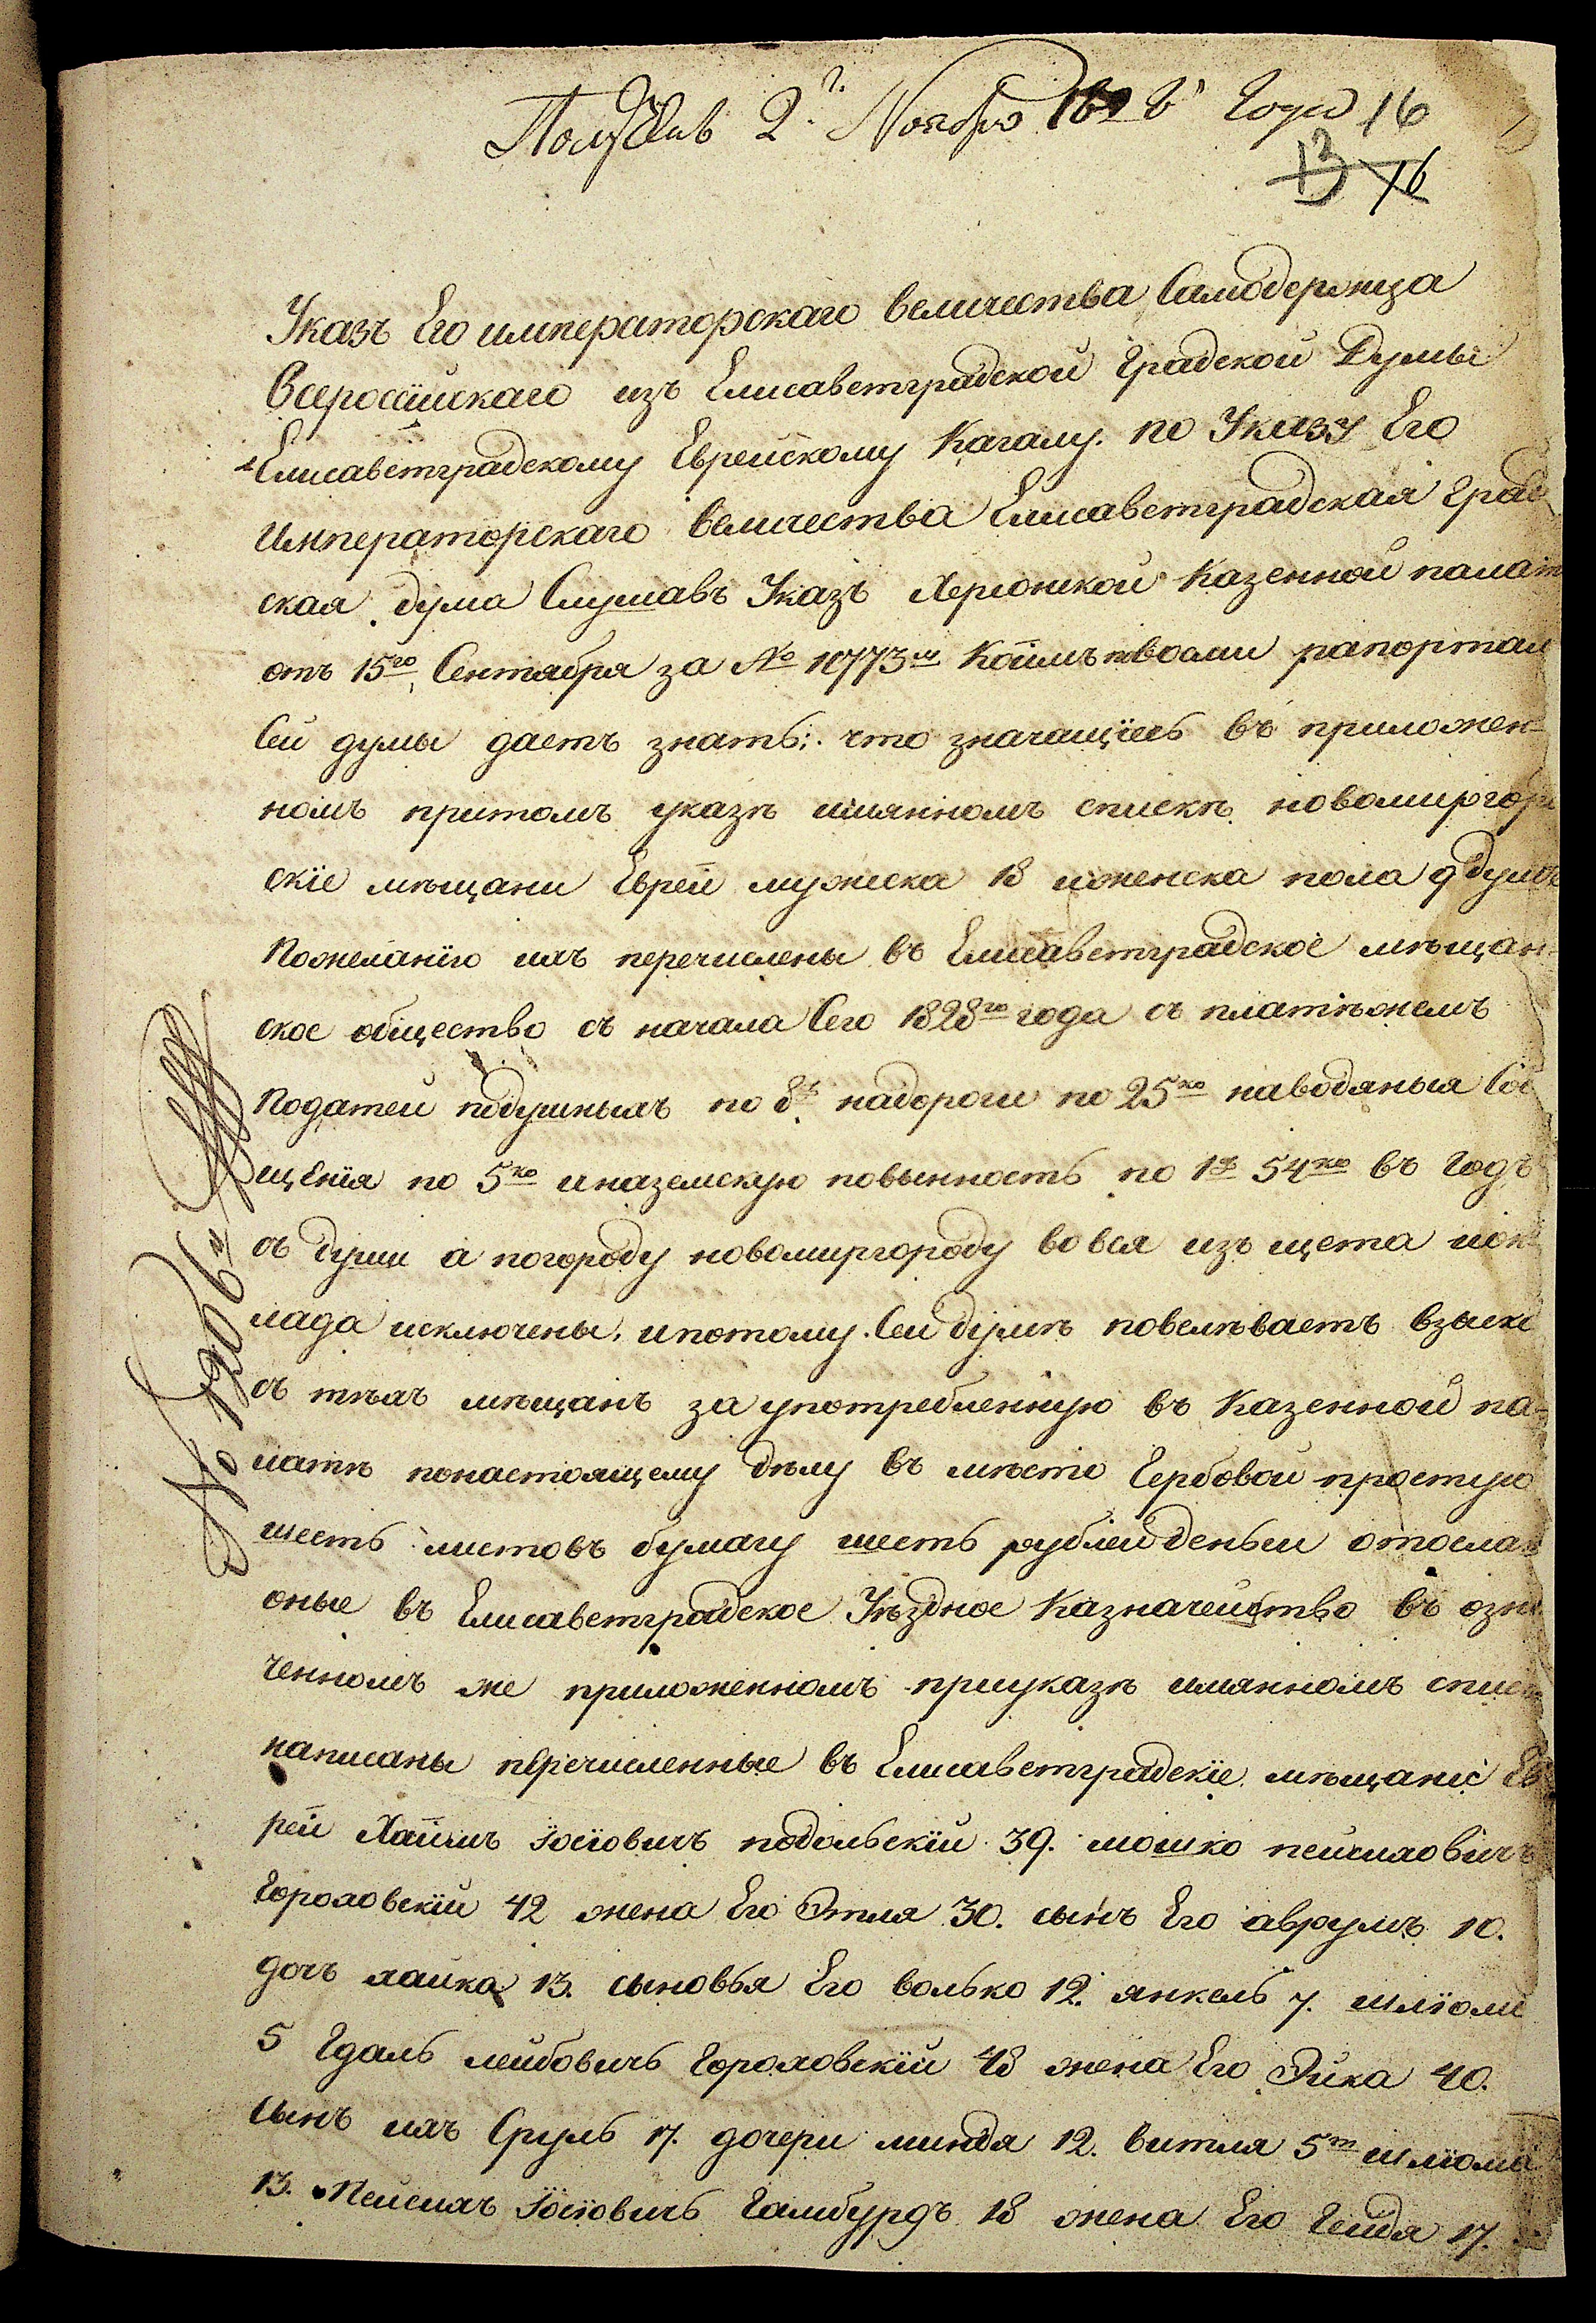 Получив 2г. Ноября 1828 года 16
13 16
Указъ Его императорскаго величества Самодержца
Всеросійскаго изъ Елисаветградской градской Думы
Елисаветградскому Еврейскому Кагалу. по Указу Его
Императорскаго величества Елисаветградская град
ская дума Слушавъ Указъ Херсонской Казенной палат
отъ 15го Сентября за № 10773м Коимъ рапортам
Сей думы даетъ знать: что значащіесь въ приложен=
номъ притомъ указѣ имянномъ спискѣ новомиргор
скіе мѣщани Евреи мужеска 18 иженска пола 9 душъ
Пожеланію ихъ перечислены въ Елисаветградское мѣщан=
ское общество съ начала Сего 1828го года съ платѣжемъ
Податей подушныхъ по 8р надороги по 25ко наводяныя Соо
щенія по 5ко иназемскую повынность по 1р 54ко въ годъ
съ души а погороду новомиргороду вовся изъ щета иок=
лада исключены, ипотому Сей думѣ повелѣваетъ взыск
съ тѣхъ мѣщанъ за употребленную въ Казенной па=
латѣ понастоящему дѣлу въ мѣсто Гербовой простую
шесть листовъ бумагу шесть рублей деньги отослат
оные въ Елисаветградское Уѣздное Казначейство въ озна
ченномъ же приложенномъ приуказѣ имянномъ списк
написаны перечисленные въ Елисаветградскіе мѣщане Ев
реи Хаимъ Іосіовичъ подольскій 39. мошко пейсиховичъ
Гороховскій 42 жена Его Этля 30. сынъ Его аврумъ 10.
дочъ хаика 13. сыновья Его волько 12. янкель 7. шліома
5 Гдаль лейбовичъ Гороховскій 48 жена Его Эйка 40.
сынъ ихъ Сруль 17. дочери миндя 12. витля 5т шліома
13. Пейсихъ Іосіовичъ Гамбургъ 18 жена Его Гендя 17.
№ 1206й